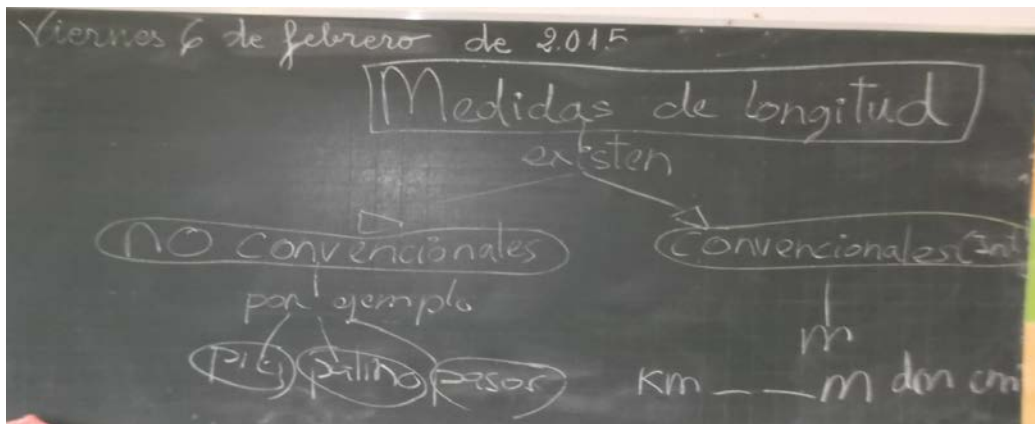 Viernes 6 de febrero de 2.015
Medidas de longitud
existen
no convencionales
Convencionales (Int
por ejemplo
m
pie palmo pasos
Km _ _ m dm cm